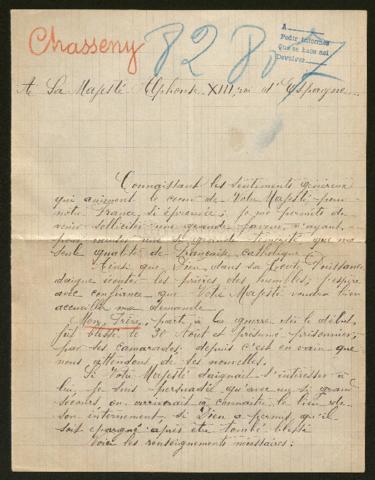 Chasseny
8280
A
Pedir informes
Que se hace así
Devolver
A Sa Majesté Alphonse XIII, roi d'Espagne.
Connaissant les sentiments généreux
qui animent le cœur de Votre Majesté pour
notre France, si éprouvée; je me permets de
venir solliciter une grande faveur, n'ayant,
pour mériter une si grande bonté que ma
seule qualité de française catholique.
Ainsi que Dieu, dans sa Toute Puissance
daigne écouter les prières des humbles, j'espère
avec confiance que Votre Majesté voudra bien
accueillir ma demande.
Mon frère, parti à la guerre dès le début,
fut blessé le 30 Août et présumé prisonnier,
par ses camarades; depuis c'est en vain que
nous attendons de ses nouvelles.
Si Votre Majesté daignait s'intéresser à
lui, je suis persuadée qu'avec un si grand
secours on arriverait à connaître le lieu de
son internement, si Dieu a permis qu'il
soit épargné après être tombé blessé
Voici les renseignements nécessaires: